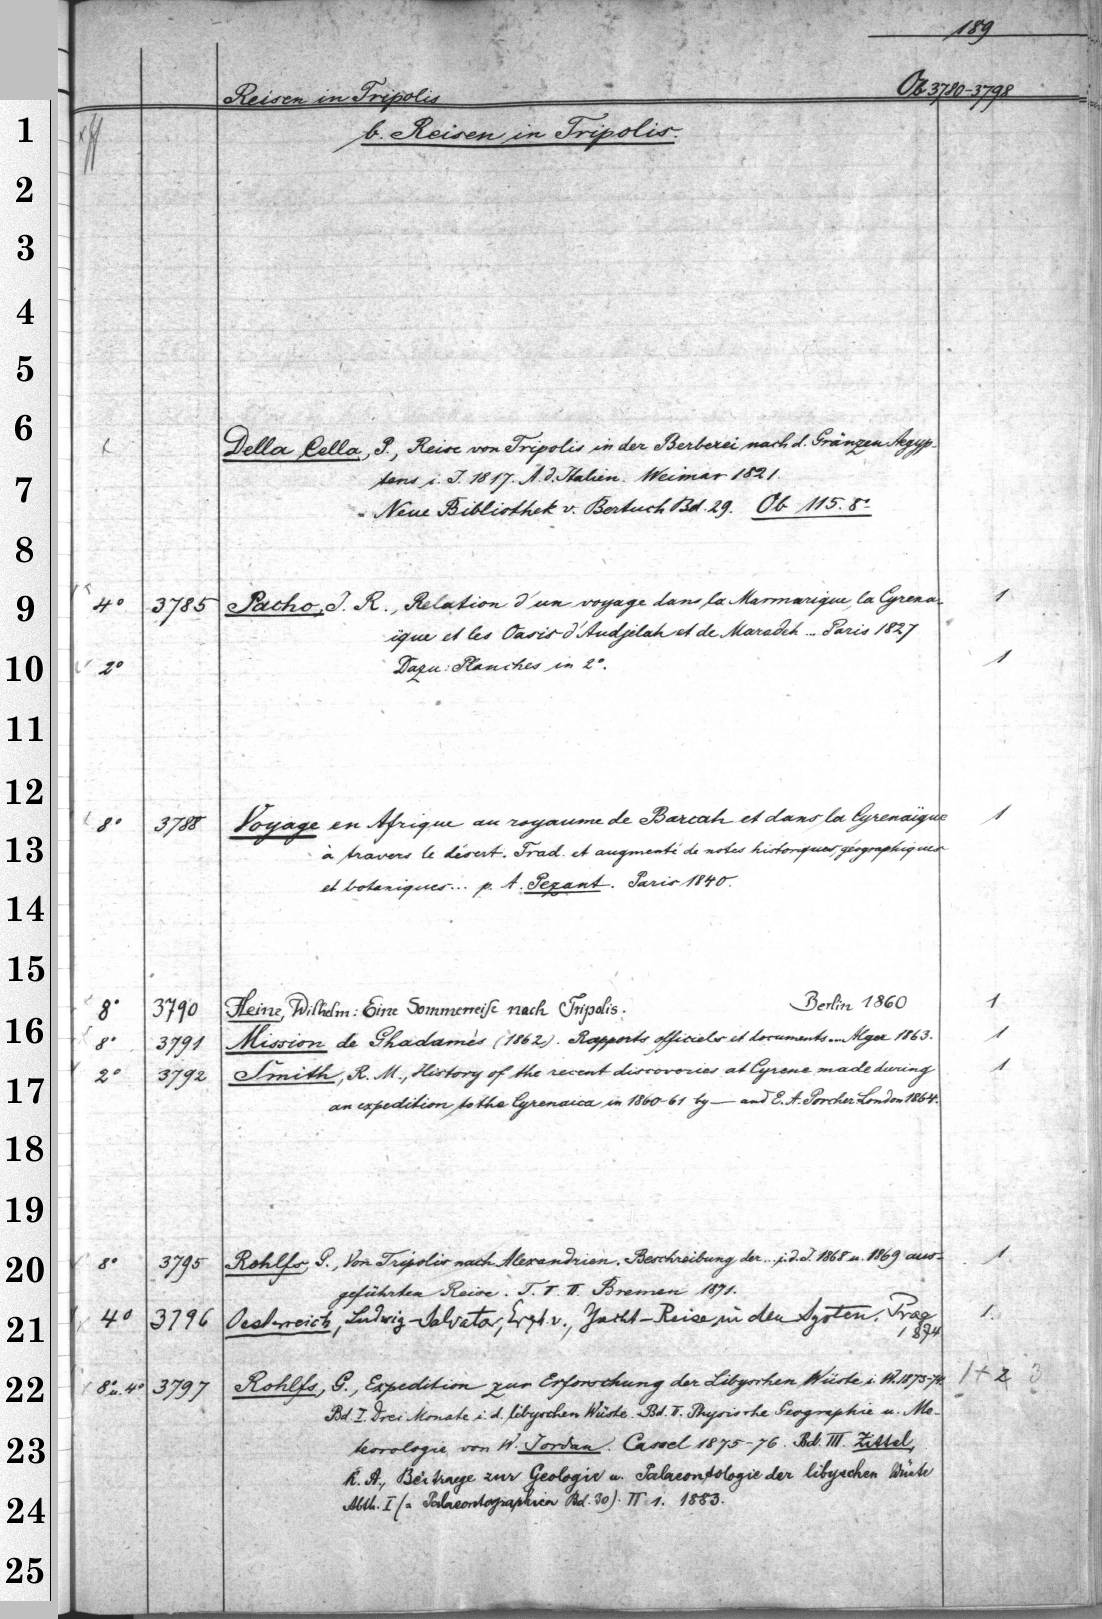 189
Reisen in Tripolis Ob 3780-3798
1 b. Reisen in Tripolis.
2
3
4
5
6 Della Cella, P., Reise von Tripolis in der Berberei nach d. Gränzen Aegyp-
7 tens i. J. 1817. A. d. Italien. Weimar 1821.
= Neue Bibliothek v. Bertuch Bd. 29. Ob 115. 8°
8
9 4° 3785 Pacho, J. R., Relation d'un voyage dans la Marmarique, la Cyrena- 1
ïque et les Oasis d'Audjelah et de Maradeh ... Paris 1827
10 2° Dazu: Planches in 2°. 1
11
12
8° 3788 Voyage en Afrique au royaume de Barcah et dans la Cyrenaïque 1
13 à travers le désert. Trad. et augmenté de notes historiques, géographiques
14 et botaniques... p. A. Pezant. Paris 1840.
15
8° 3790 Heine, Wilhelm: Eine Sommerreise nach Tripolis. Berlin 1860 1
16 8° 3791 Mission de Ghadamès (1862). Rapports officiels et documents ... Alger 1863. 1
2° 3792 Smith, R. M., History of the recent discoveries at Cyrene made during 1
17 an expedition to the Cyrenaica in 1860-61 by — and E. A. Porcher London 1864.
18
19
20 8° 3795 Rohlfs, G., Von Tripolis nach Alexandrien. Beschreibung der ... i. d. J. 1868 u. 1869 aus- 1
geführten Reise. T. I II. Bremen 1871.
21 4° 3796 Oesterreich, Ludwig-Salvator, Erzh. v., Yacht-Reise in den Syrten. Prag 1.
1874
22 8° u. 4° 3797 Rohlfs, G., Expedition zur Erforschung der Libyschen Wüste i. W. 1873-74. 1+2 3
Bd. I. Drei Monate i. d. libyschen Wüste. Bd. II. Physische Geographie u. Me-
23 teorologie von W. Jordan. Cassel 1875-76. Bd. III. Zittel,
K. A., Beitraege zur Geologie u. Palaeontologie der libyschen Wüste
24 Abth. I (= Palaeontographica Bd. 30). II 1. 1883.
25